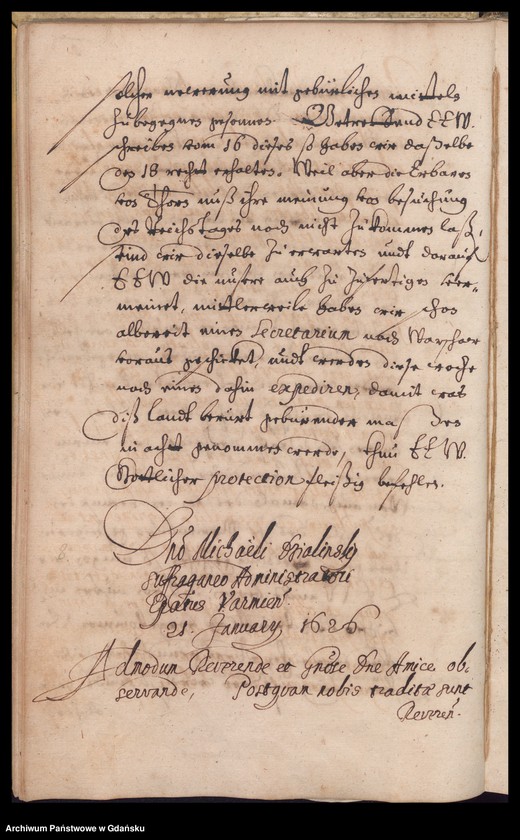 solcher newerung mit gebürlichen mittels
zubegegnen gesonnen. Betreffend EEW.
schreiben vom 16 dieses so haben wir dasselbe
den 18 recht erhalten. Weil aber die Erbaren
von Thorn unß ihre meinung von besuchung
des Reichstages noch nicht zukommen laß,
sind wir dieselbe zu erwarten undt darauff
EEW die unsere auch zu zufertigen ver-
meinet, mitlerweile haben wir schon
albereit einen Secretarium nach Warschaw
voraus geschicket, undt werden diese woche
noch einen dahin expediren, damit was
diß landt berürt gebürender massen
in acht genommen werde, thun EEW.
Göttlicher protection fleißig befehlen.
Dno Michaëli Dzialinsky
Suffraganeo Administratori
Epatus Varmien.
21 January 1626
Admodum Reverende et Gnose Dne Amice ob-
servande, Postquam nobis traditæ sunt
Reveren.
Archiwum Państwowe w Gdańsku